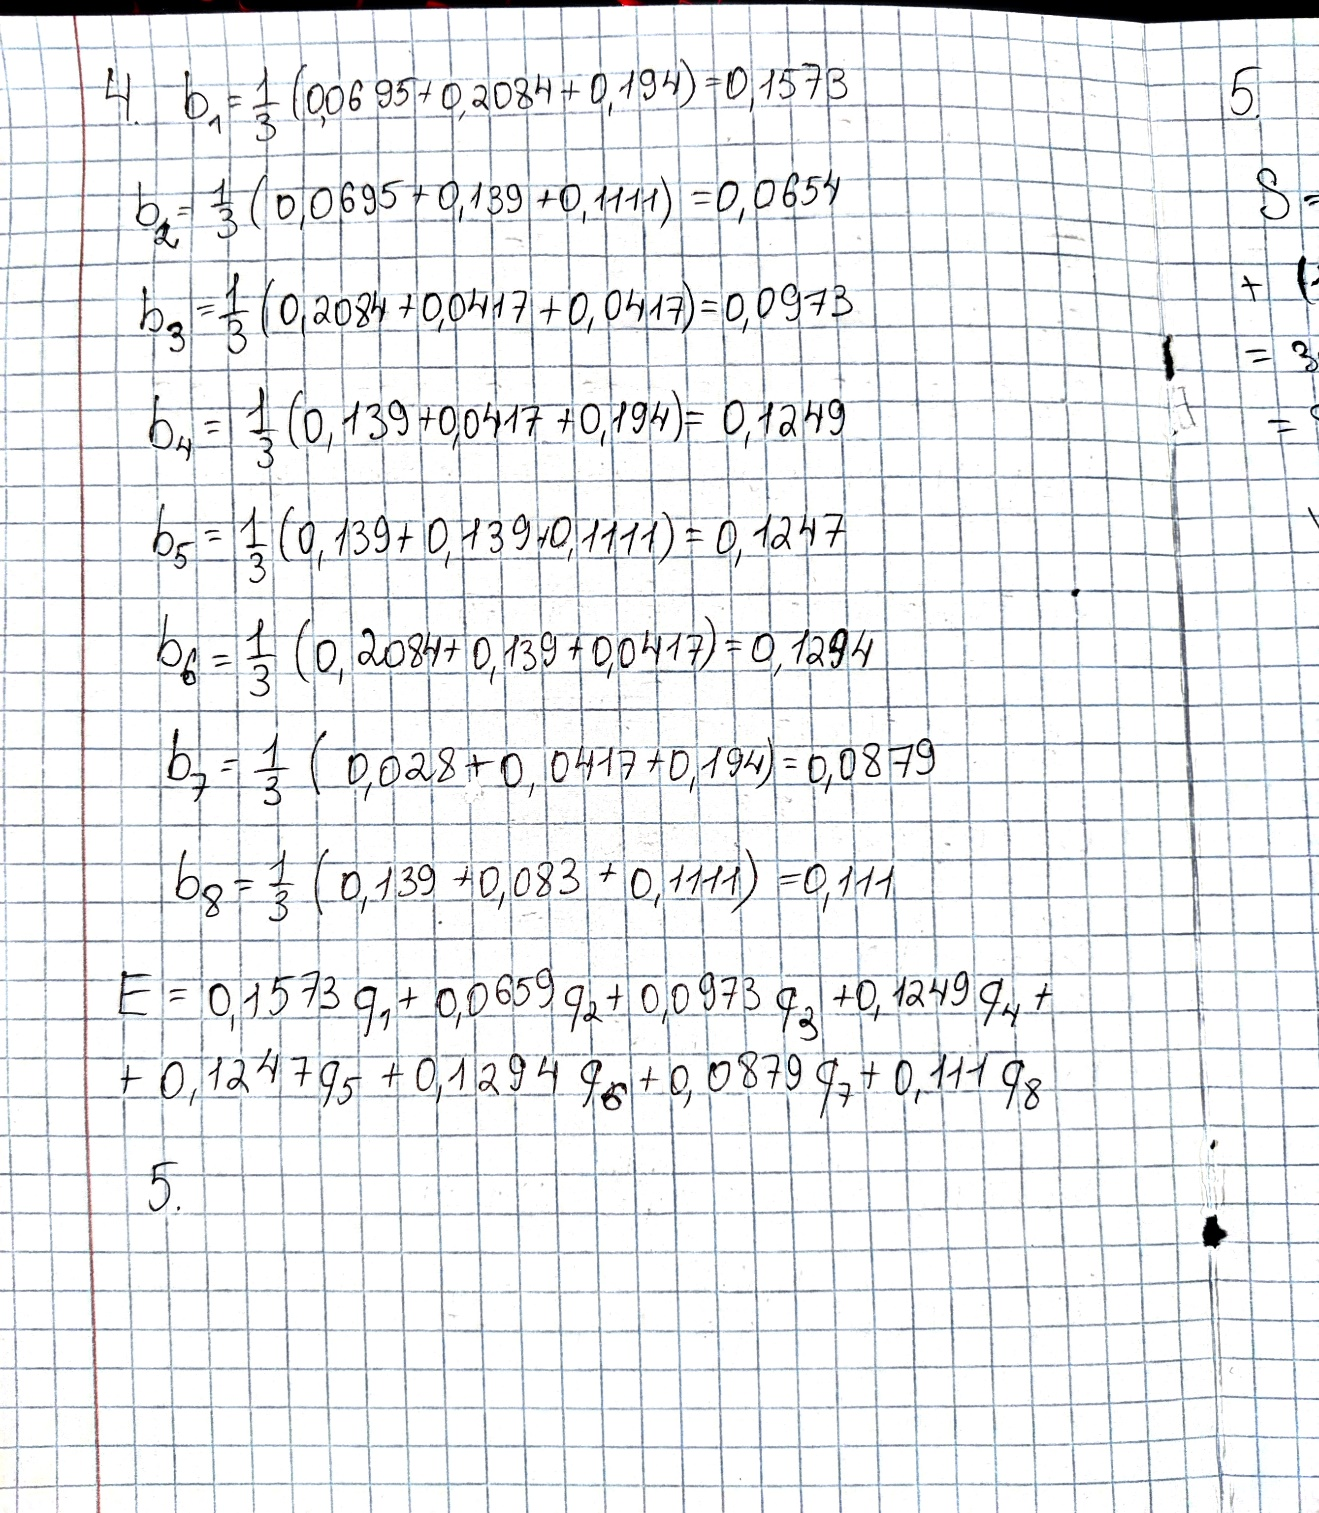 4. b₁ = 1/3 (0,0695 + 0,2084 + 0,194) = 0,1573
b₂ = 1/3 (0,0695 + 0,139 + 0,1111) = 0,0654
b₃ = 1/3 (0,2084 + 0,0417 + 0,0417) = 0,0973
b₄ = 1/3 (0,139 + 0,0417 + 0,194) = 0,1249
b₅ = 1/3 (0,139 + 0,139 + 0,1111) = 0,1247
b₆ = 1/3 (0,2084 + 0,139 + 0,0417) = 0,1294
b₇ = 1/3 (0,028 + 0,0417 + 0,194) = 0,0879
b₈ = 1/3 (0,139 + 0,083 + 0,1111) = 0,111
E = 0,1573 q₁ + 0,0659 q₂ + 0,0973 q₃ + 0,1249 q₄ +
+ 0,1247 q₅ + 0,1294 q₆ + 0,0879 q₇ + 0,111 q₈
5.
5.
S =
+ (
= 3
=